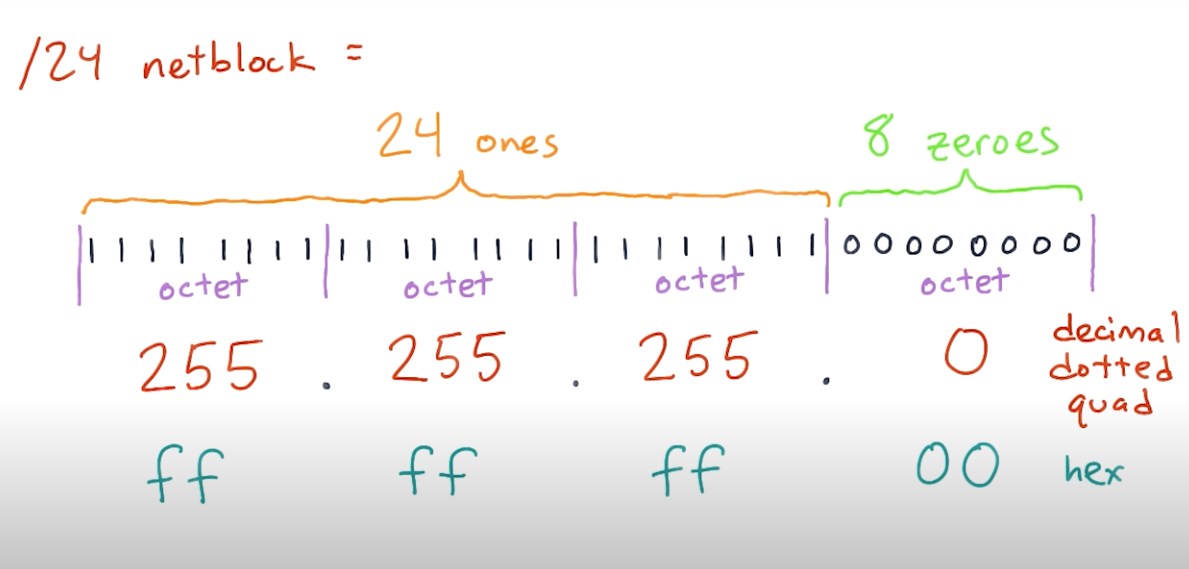 /24 netblock =
24 ones 8 zeroes
1 1 1 1 1 1 1 1 1 1 1 1 1 1 1 1 1 1 1 1 1 1 1 1 0 0 0 0 0 0 0 0
octet octet octet octet
255 . 255 . 255 . 0 decimal
dotted
quad
ff ff ff 00 hex